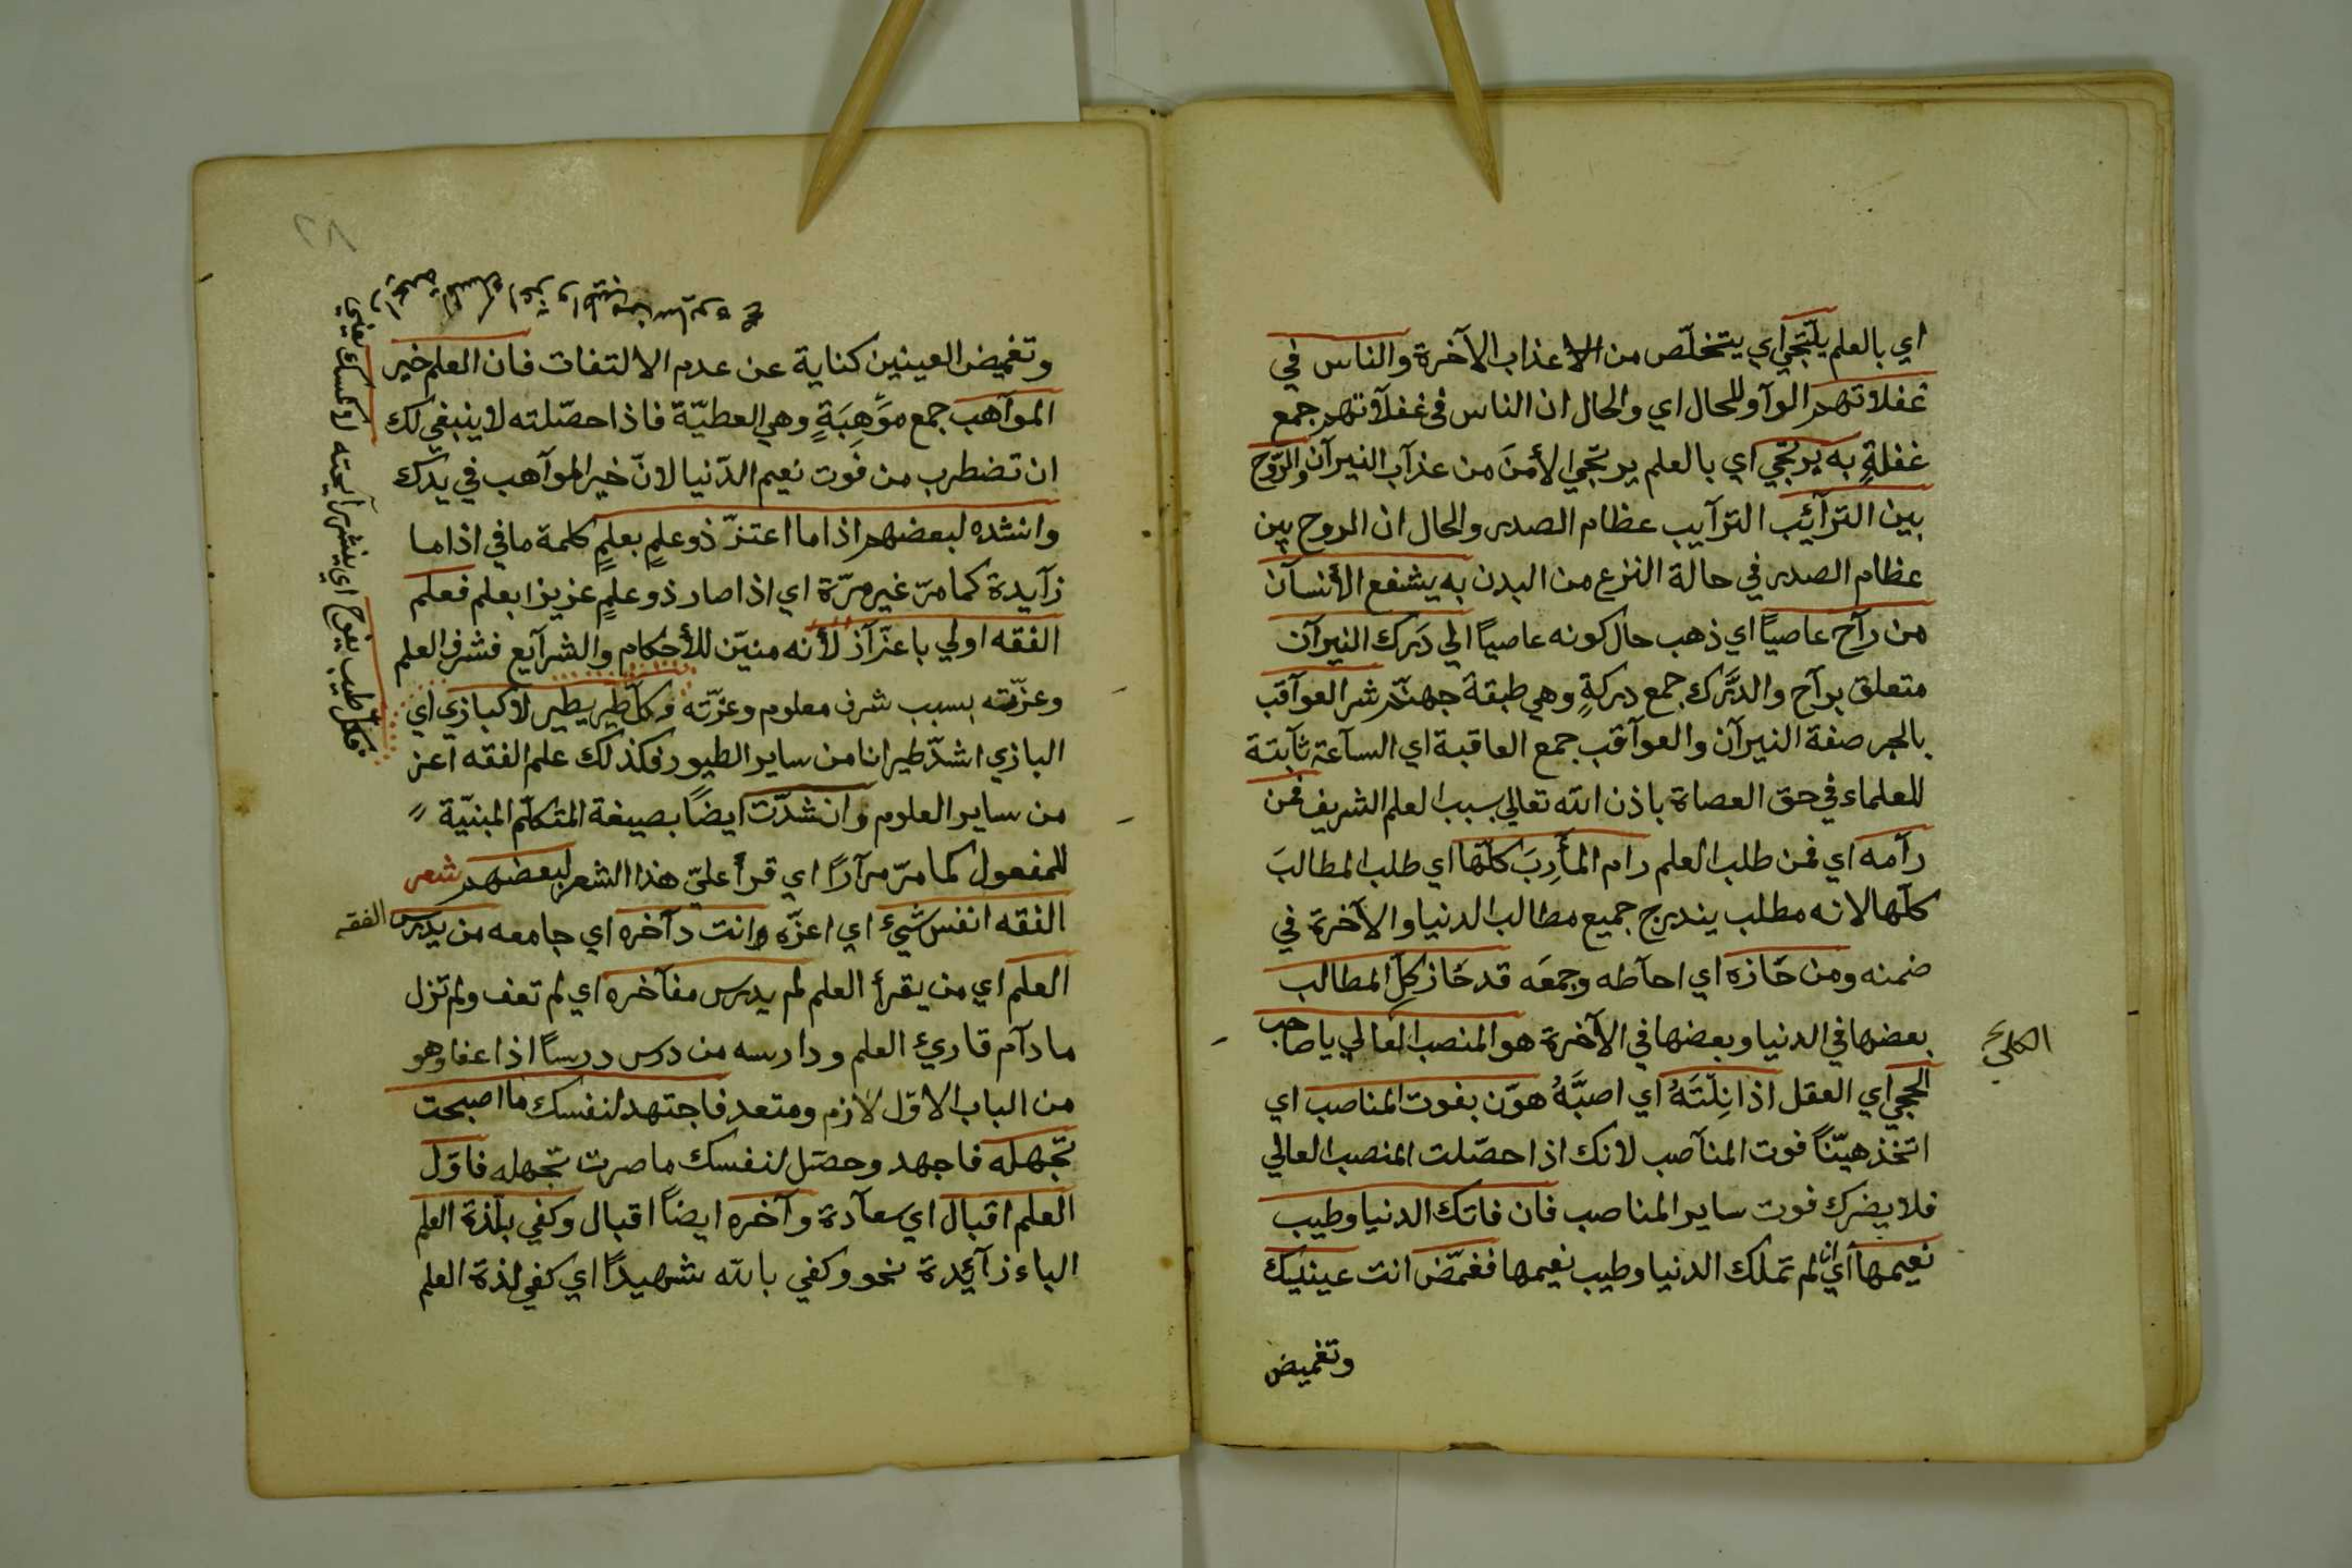 اي بالعلم يلتجي اي يتخلّص من عذاب الآخرة والناس في
غفلاتهم الوآو للحال اي والحال ان الناس في غفلآتهم جمع
غفلةٍ به يرتجي اي بالعلم يرتجي الأمنَ من عذآب النيرآن والرّوح
بين الترآئب الترآيب عظام الصدر والحال ان الروح بين
عظام الصدر في حالة النزع من البدن به يشفع الأنسآن
من رآح عاصيًا اي ذهب حال كونه عاصيًا الي دَرك النيرآن
متعلق برآح والدَّرك جمع دركةٍ وهي طبقة جهنّم شر العوآقب
بالجر صفة النيرآن والعوآقب جمع العاقبة اي السآعة ثآبتة
للعلماء في حق العصاة باذن الله تعالي بسبب العلم الشريف فمن
رآمه اي فمن طلب العلم رام المأَرِبَ كلّها اي طلب المطالبَ
كلّها لانه مطلب يندرج جميع مطالب الدنيا والآخرة في
ضمنه ومن حَازه اي احآطه وجمعَه قد حَاز كل المطالب
بعضها في الدنيا وبعضها في الآخرة هو المنصب العالي يا صاحب
الحجي اي العقل اذا نِلْتَهُ اي اصبَّهُ هوّن بفوت المناصب اي
اتخذ هيّنًا فوت المنآصب لانك اذا حصّلت المنصب العالي
فلا يضرك فوت ساير المناصب فان فاتك الدنيا وطيب
نعيمها اي ان لم تملك الدنيا وطيب نعيمها فغمّض انت عينيك
وتغميض
وتغميض العينين كناية عن عدم الالتفات فان العلم خير
الموآهب جمع موَهِبَةٍ وهي العطيّة فاذا حصّلته لا ينبغي لك
ان تضطرب من فوت نعيم الدّنيا لانّ خير الموآهب في يدك
وانشده لبعضهم اذا ما اعتزّ ذو علمٍ بعلمٍ كلمة ما في اذا ما
زآيدة كما مرّ غير مرّة اي اذا صار ذو علمٍ عزيزا بعلم فعلم
الفقه اولي باعتزآز لأنه منيّن للأحكام والشرآيع فشرف العلم
وعزّته بسبب شرف معلوم وعزّته وكل طير يطير لا كبازي اي
البازي اشدّ طيرانا من ساير الطيور فكذلك علم الفقه اعز
من ساير العلوم وانشدّت ايضًا بصيغة المتكلّم المبنيّة
للمفعول كما مرّ مرآرًا اي قرأ عليّ هذا الشعر لبعضهم شعر
الفقه انفس شيء اي اعزّه وانت دآخره اي جامعه من يدرس الفقه
العلم اي من يقرأ العلم لم يدرس مفآخره اي لم تعف ولم تزل
ما دآم قاريء العلم ودارسه من درس درسًا اذا عفا وهو
من الباب الاوّل لازم ومتعد فاجتهد لنفسك ما اصبحت
تجهله فاجهد وحصّل لنفسك ما صرت تجهله فاوّل
العلم اقبال اي سعآدة وآخره ايضًا اقبال وكفي بلّذة العلم
الباء زآئدة نحو وكفي بالله شهيدًا اي كفي لذة العلم